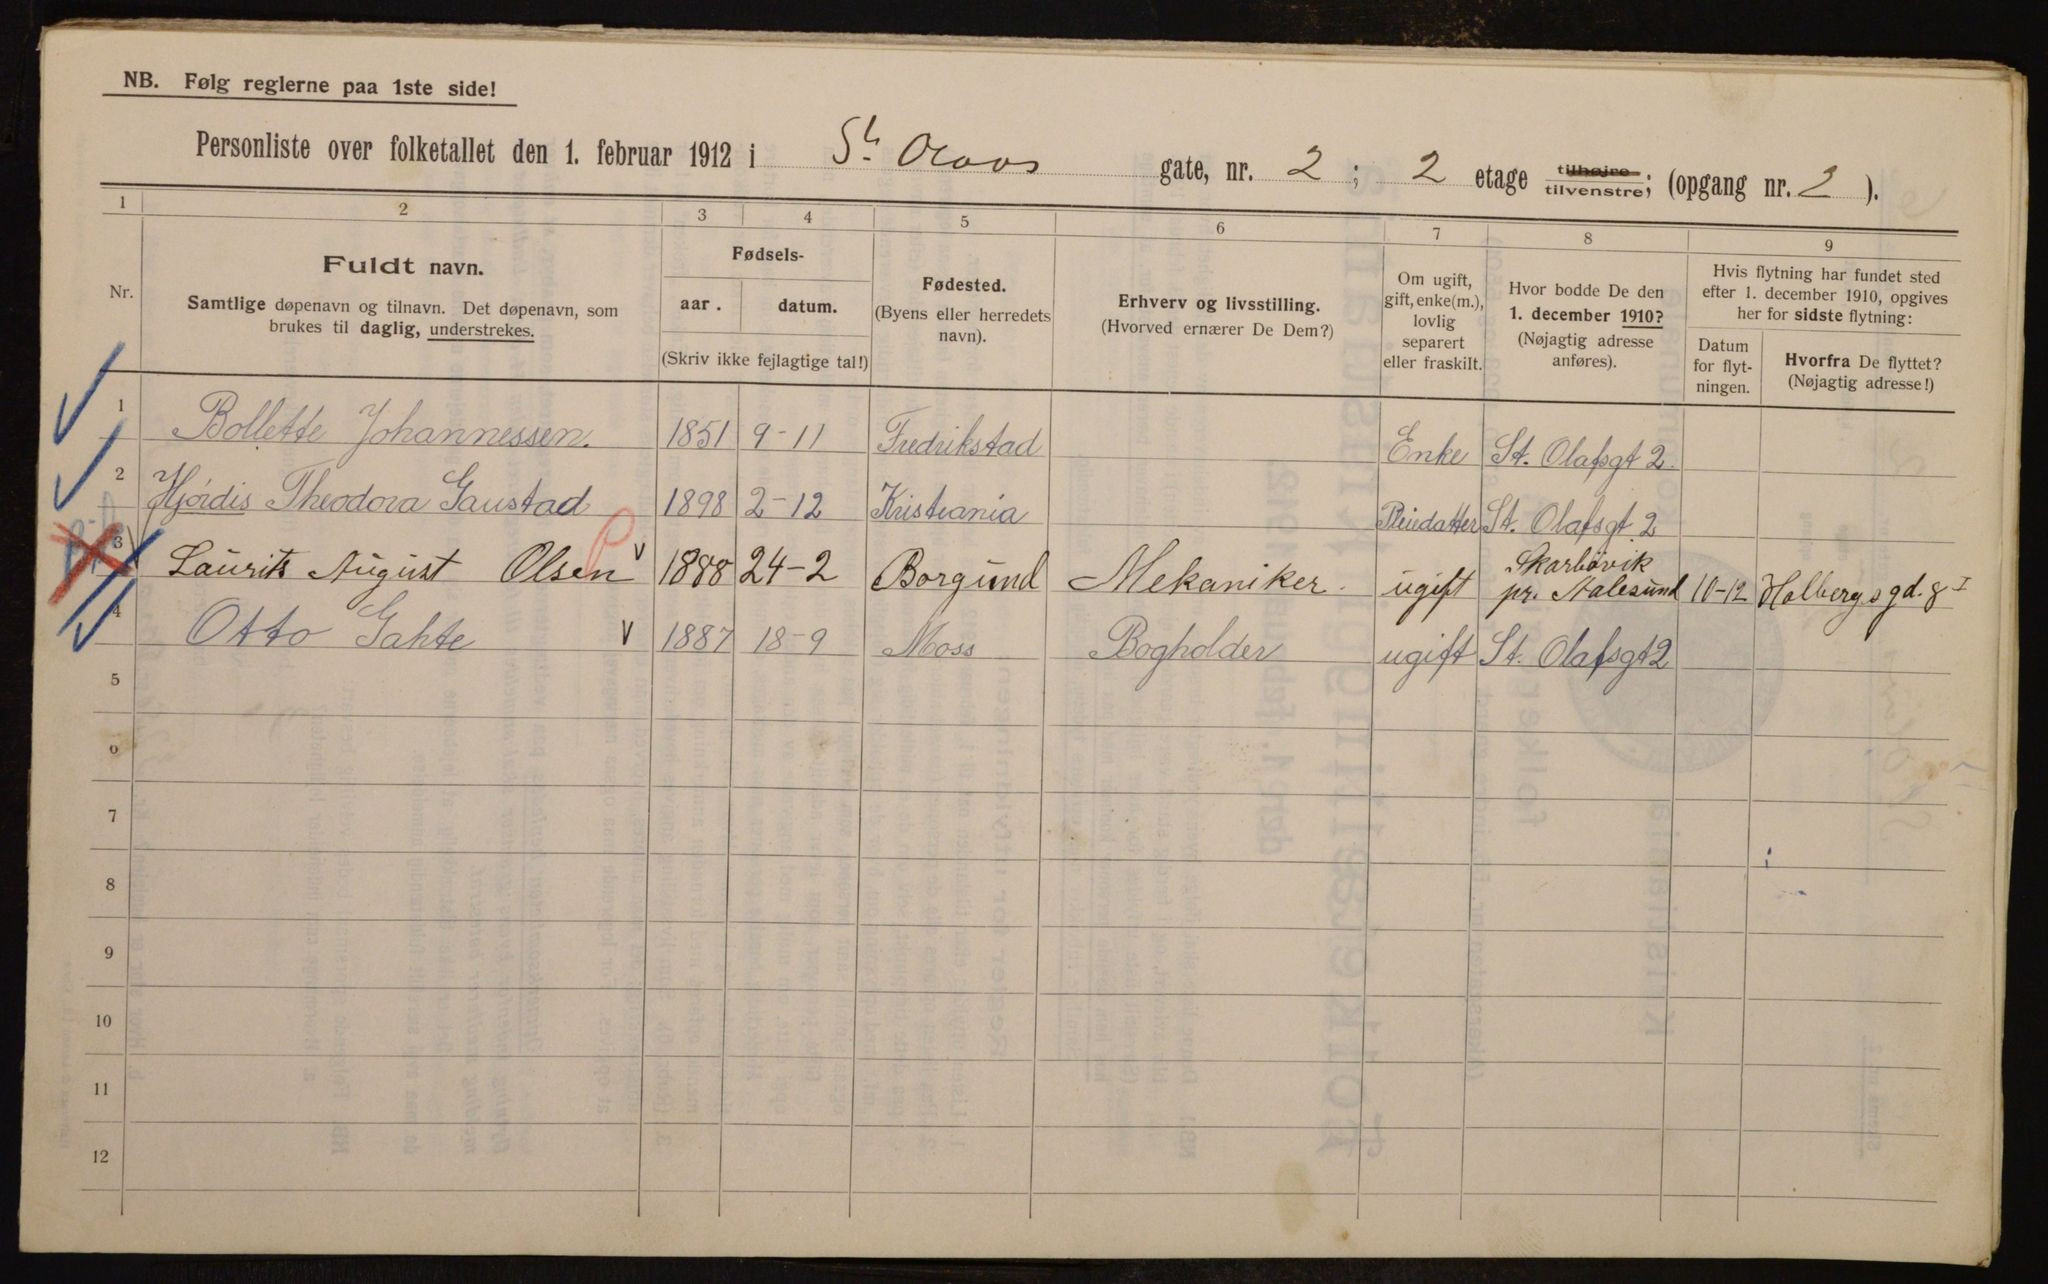 NB. Følg reglerne paa 1ste side!
Personliste over folketallet den 1. februar 1912 i St. Olavs gate, nr. 2 ; 2 etage tilhøjre tilvenstre; (opgang nr. 2 ).
1 2 3 4 5 6 7 8 9
Nr.
Fuldt navn.
Samtlige døpenavn og tilnavn. Det døpenavn, som
brukes til daglig, understrekes.
Fødsels-
aar. datum.
(Skriv ikke fejlagtige tal!)
Fødested.
(Byens eller herredets
navn).
Erhverv og livsstilling.
(Hvorved ernærer De Dem?)
Om ugift,
gift, enke(m.),
lovlig
separert
eller fraskilt.
Hvor bodde De den
1. december 1910?
(Nøjagtig adresse
anføres).
Hvis flytning har fundet sted
efter 1. december 1910, opgives
her for sidste flytning:
Datum
for flyt-
ningen.
Hvorfra De flyttet?
(Nøjagtig adresse!)
1 Bollette Johannessen. 1851 9-11 Fredrikstad Enke St. Olafsgt 2.
2 Hjördis Theodora Gaustad 1898 2-12 Kristiania Pleiedatter St. Olafsgt. 2
3 Laurits August Olsen v 1888 24-2 Borgund Mekaniker. ugift Skarbövik pr. Aalesund 10-12 Holbergsgd. 8 I
4 Otto Gahte v 1887 18-9 Moss Bogholder ugift St. Olafsgt 2
5
6
7
8
9
10
11
12